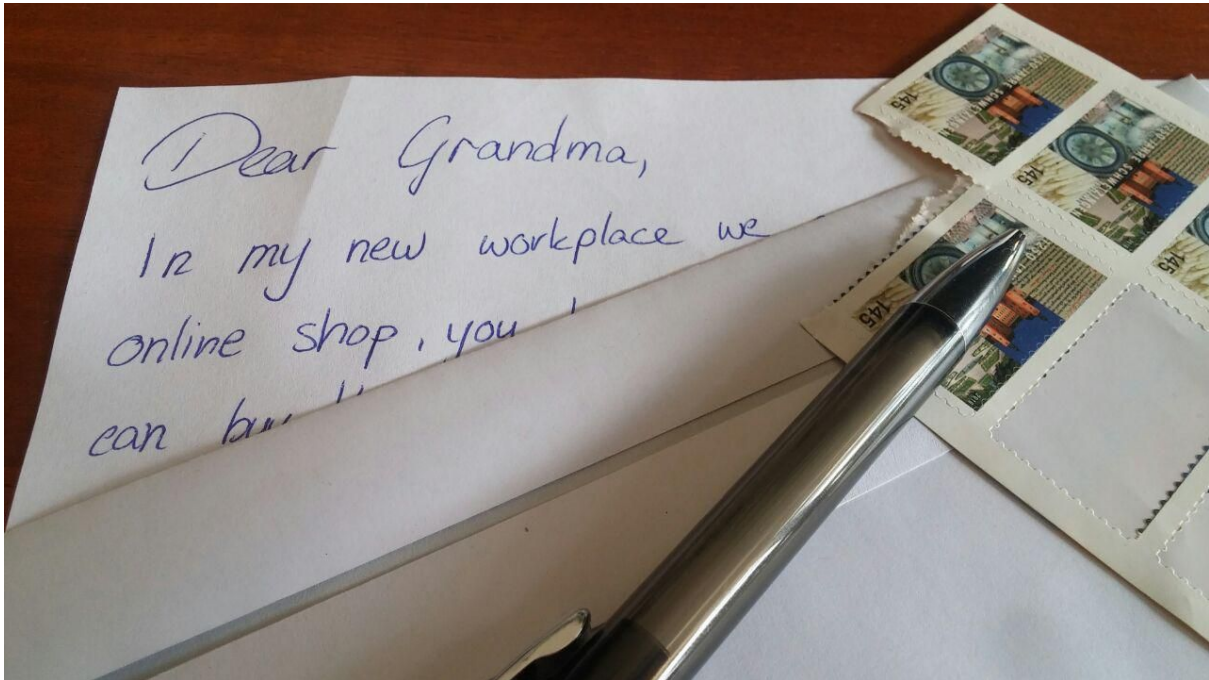 Dear Grandma,
In my new workplace we
online shop, you
can buy
145
145
145
145